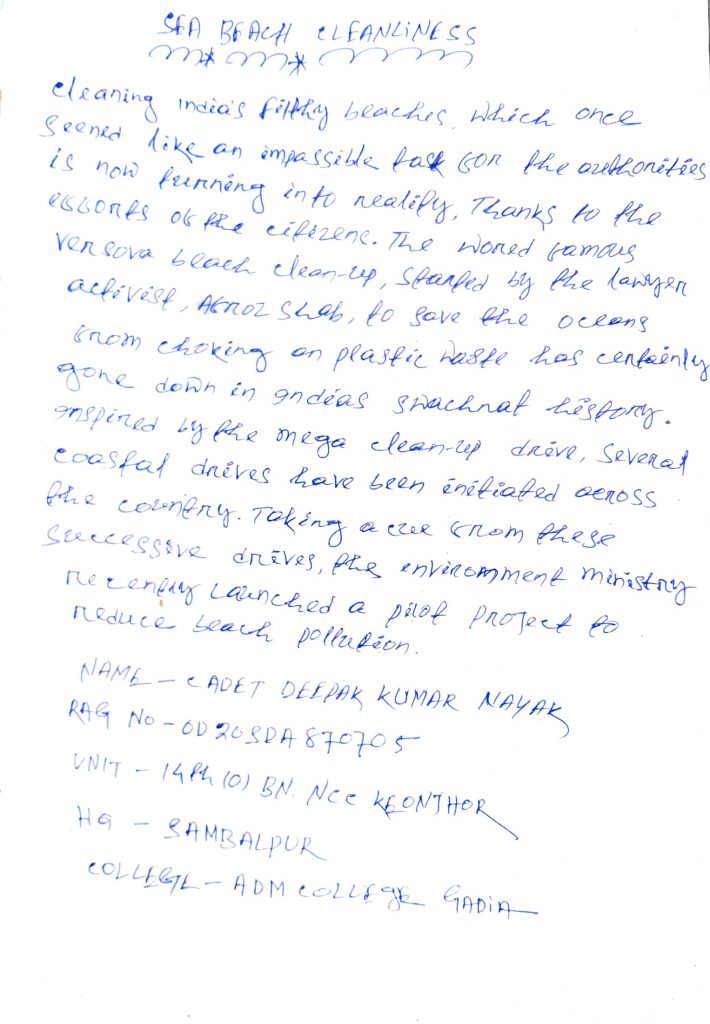 SEA BEACH CLEANLINESS
cleaning India's filthy beaches, which once
seened like an impassible task for the authorities
is now turning into reality, Thanks to the
efforts of the citizens. The world famous
versova beach clean-up, started by the lawyer
activist, Afroz Shab, to save the oceans
from choking on plastic waste has certainly
gone down in indias swachnat history.
inspired by the mega clean-up drive, several
coastal drives have been initiated across
the country. Taking a cue from these
successive drives, the enviromment ministry
recently launched a pilot project to
reduce beach pollution.
NAME - CADET DEEPAK KUMAR NAYAK
RAG No - OD20SDA870705
UNIT - 14th (O) BN. NCC KEONJHOR
HQ - SAMBALPUR
COLLEGE - ADM COLLEGE GADIA